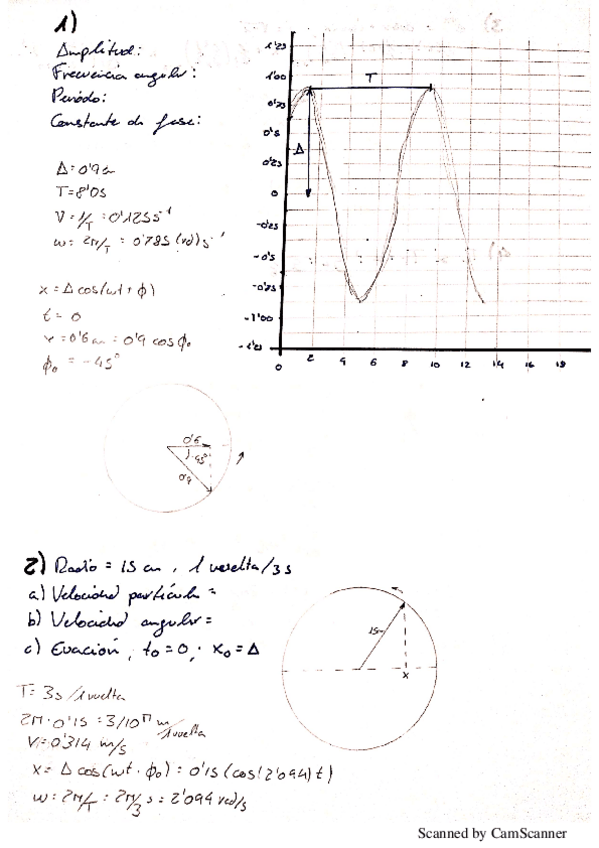 1)
Amplitud:
Frecuencia angular:
Periodo:
Constante de fase:
A = 0'9 cm
T = 8'0s
V = 1/T = 0'125 s⁻¹
ω = 2π/T = 0'785 (rd) s⁻¹
x = A cos(ωt + ϕ)
t = 0
x = 0'6 cm = 0'9 cos ϕ₀
ϕ₀ = -45°
1'25
1'00
0'75
0'5
0'25
0
-0'25
-0'5
-0'75
-1'00
-1'25
T
A
0 2 4 6 8 10 12 14 16 18
0'6
-45°
0'9
2) Radio = 15 cm, 1 vuelta/3s
a) Velocidad partícula =
b) Velocidad angular =
c) Ecuación, t₀ = 0, x₀ = A
15
x
T = 3s /1 vuelta
2π · 0'15 = 3/10 π m/1 vuelta
V = 0'314 m/s
x = A cos(ωt · ϕ₀) = 0'15 (cos(2'094) t)
ω = 2π/T = 2π/3 s = 2'094 rad/s
Scanned by CamScanner